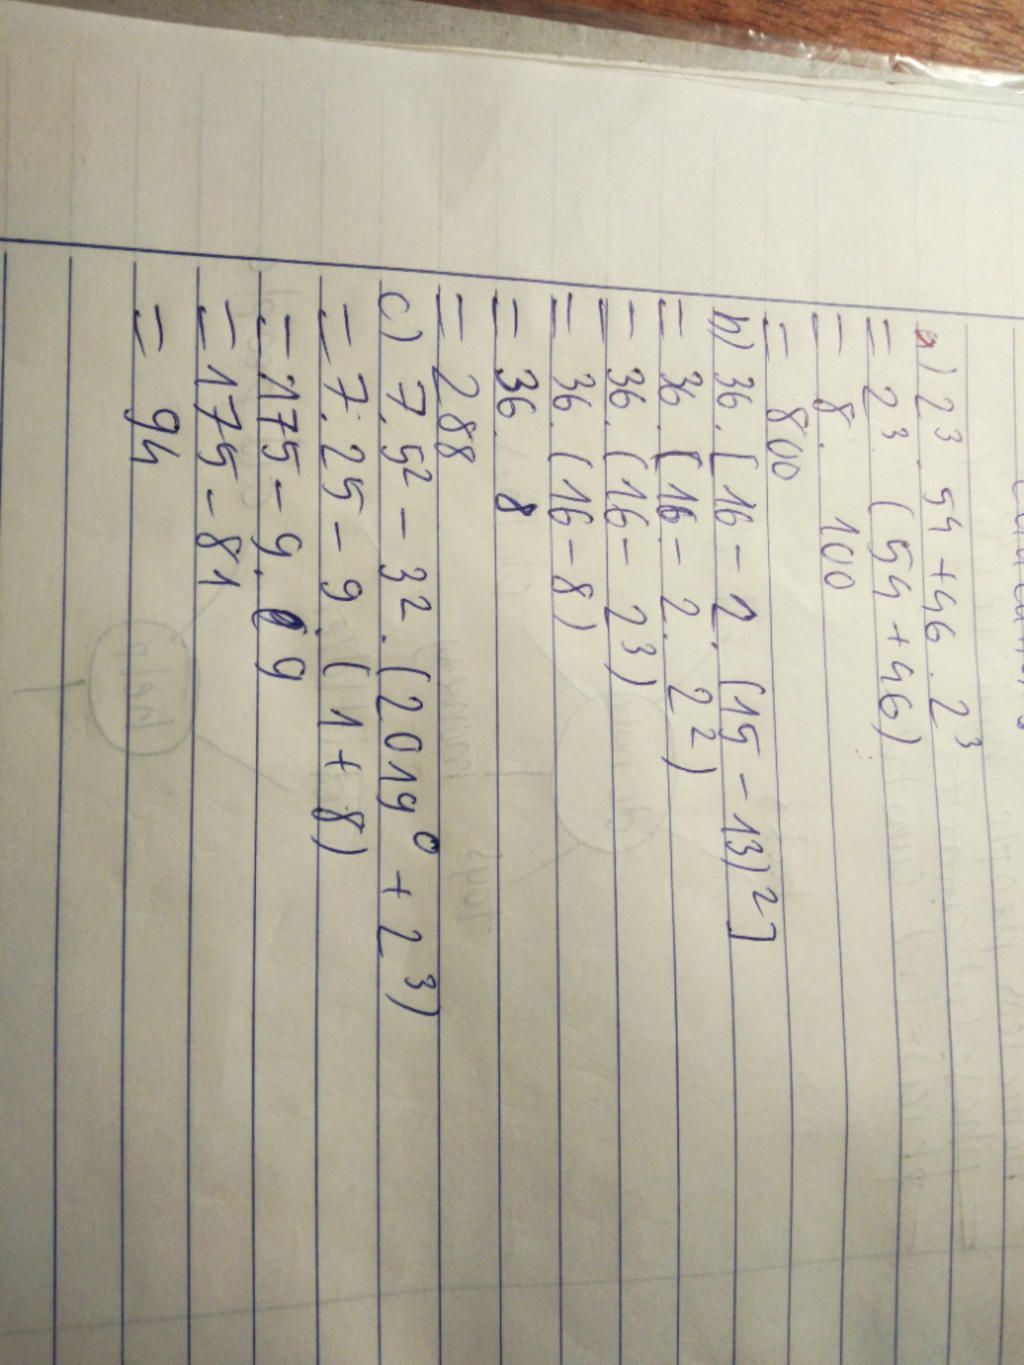 a) 2³. 54 + 46. 2³
= 2³ (54 + 46)
= 8. 100
= 800
b) 36. [16 - 2. (15 - 13)²]
= 36. [16 - 2. 2²)
= 36. (16 - 2³)
= 36. (16 - 8)
= 36. 8
= 288
c) 7. 5² - 3². (2019⁰ + 2³)
= 7. 25 - 9. (1 + 8)
= 175 - 9. 9
= 175 - 81
= 94